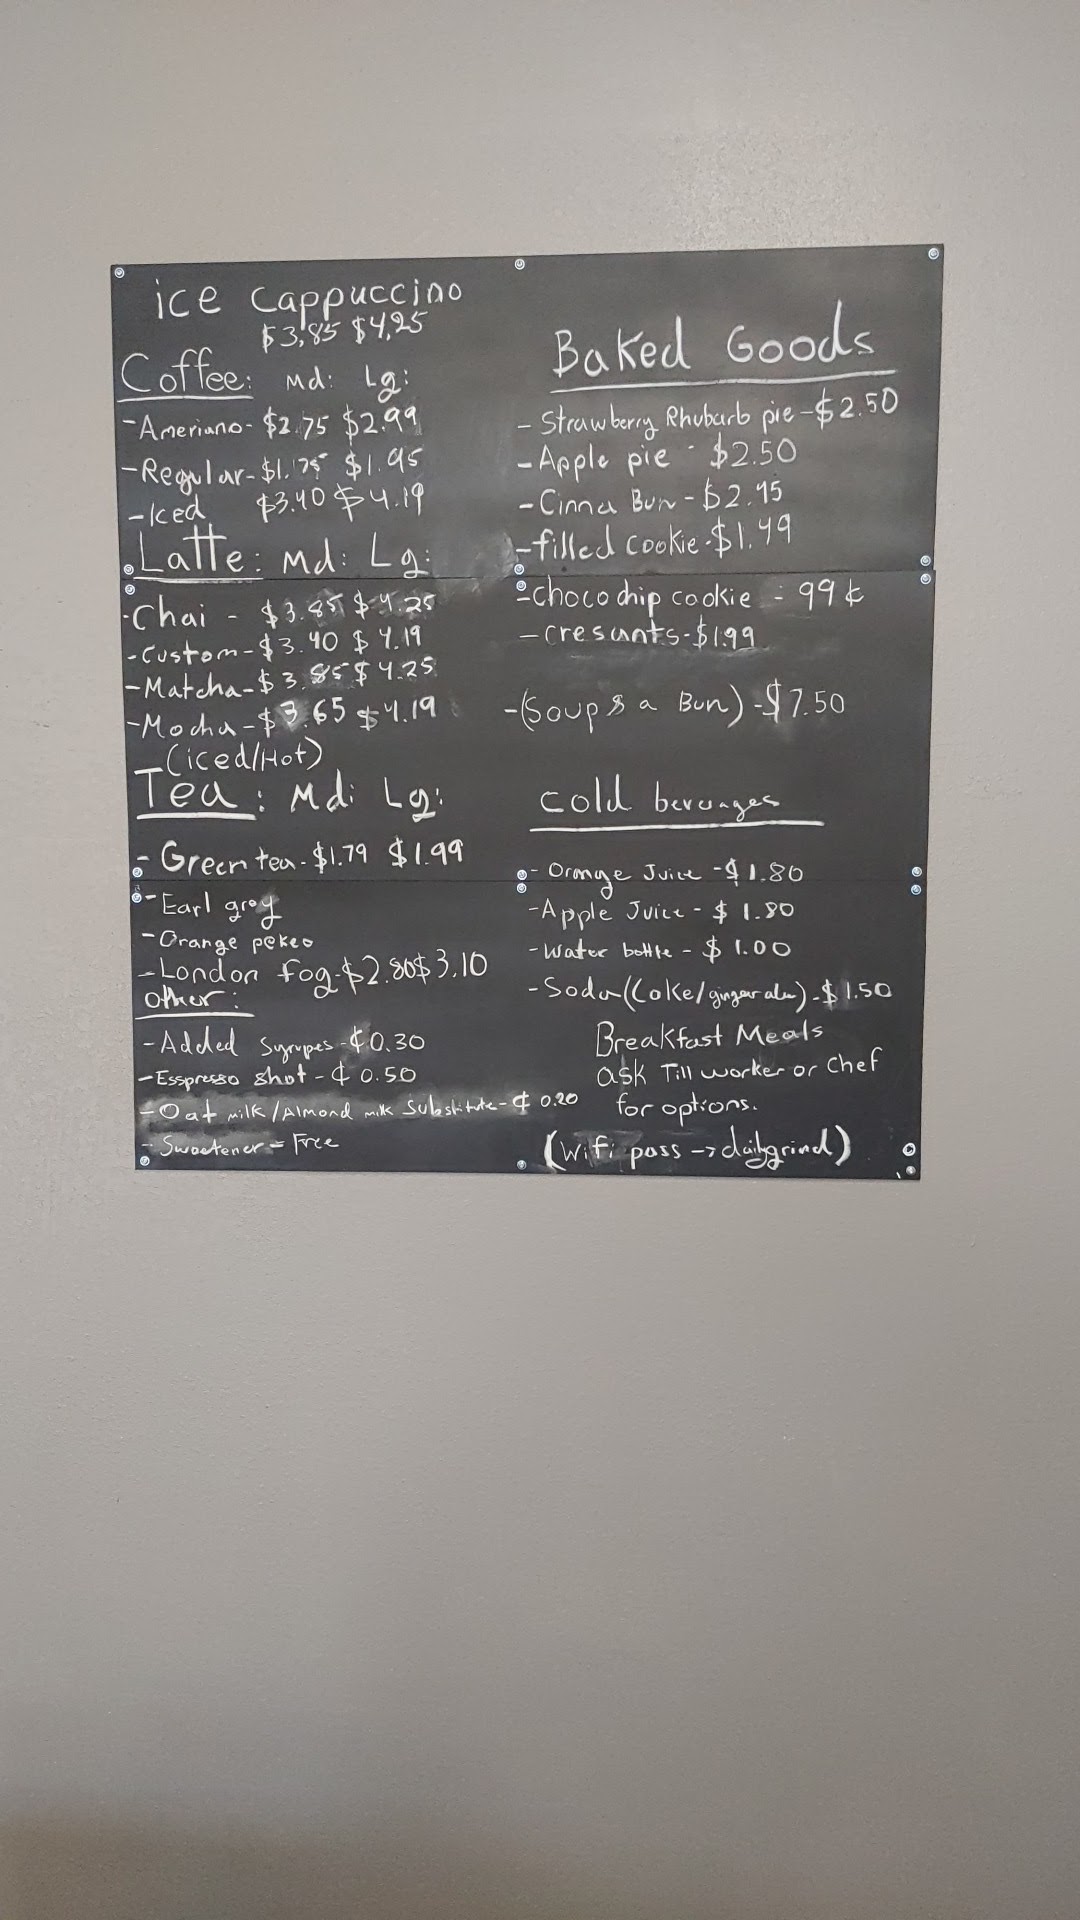 ice cappuccino
$3,85 $4,25
Coffee: Md: Lg:
-Ameriano- $2.75 $2.99
-Regular-$1.75 $1.95
-Iced $3.40 $4.19
Latte: Md: Lg:
-Chai - $3.85 $4.25
-Custom-$3.40 $4.19
-Matcha-$3.85 $4.25
-Mocha-$3.65 $4.19
(iced/Hot)
Tea: Md: Lg:
- Green tea-$1.79 $1.99
-Earl grey
-Orange pekeo
-London fog-$2.80 $3.10
other:
-Added Syrupes-¢0.30
-Esspresso shot-¢ 0.50
-Oat milk/Almond milk Substitute-¢ 0.20
- Sweetener = Free
Baked Goods
- Strawberry Rhubarb pie-$2.50
-Apple pie - $2.50
-Cinna Bun-$2.45
-filled cookie-$1.49
-choco chip cookie - 99¢
-cresants-$1.99
-(Soup & a Bun)-$7.50
cold beverages
- Orange Juice -$1.80
-Apple Juice - $ 1.80
-Water bottle - $ 1.00
-Soda(Coke/ginger ale)-$1.50
Breakfast Meals
ask Till worker or Chef
for options.
(Wifi pass → dailygrind)